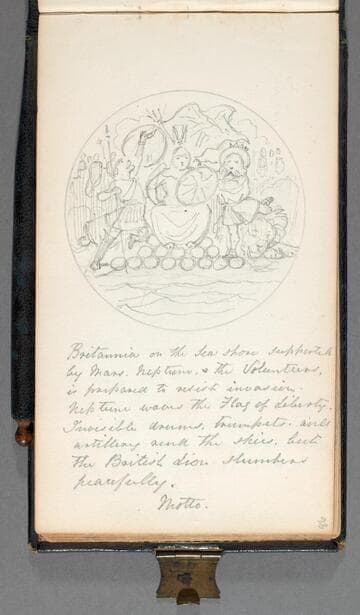 Britannia on the Sea shore supported
by Mars. Neptune, & the Volunteers,
is prepared to resist invasion.
Neptune waves the Flag of Liberty.
Invisible drums, trumpets. and
artillery rend the skies, but
the British Lion slumbers
peacefully.
Motto.